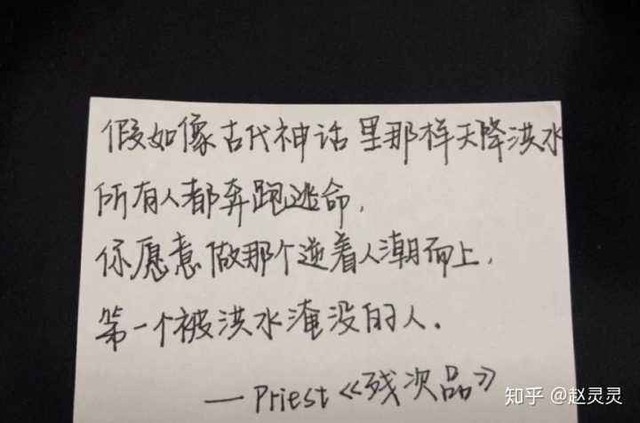 假如像古代神话里那样天降洪水
所有人都奔跑逃命,
你愿意做那个逆着人潮而上,
第一个被洪水淹没的人.
—Priest《残次品》
知乎 @赵灵灵